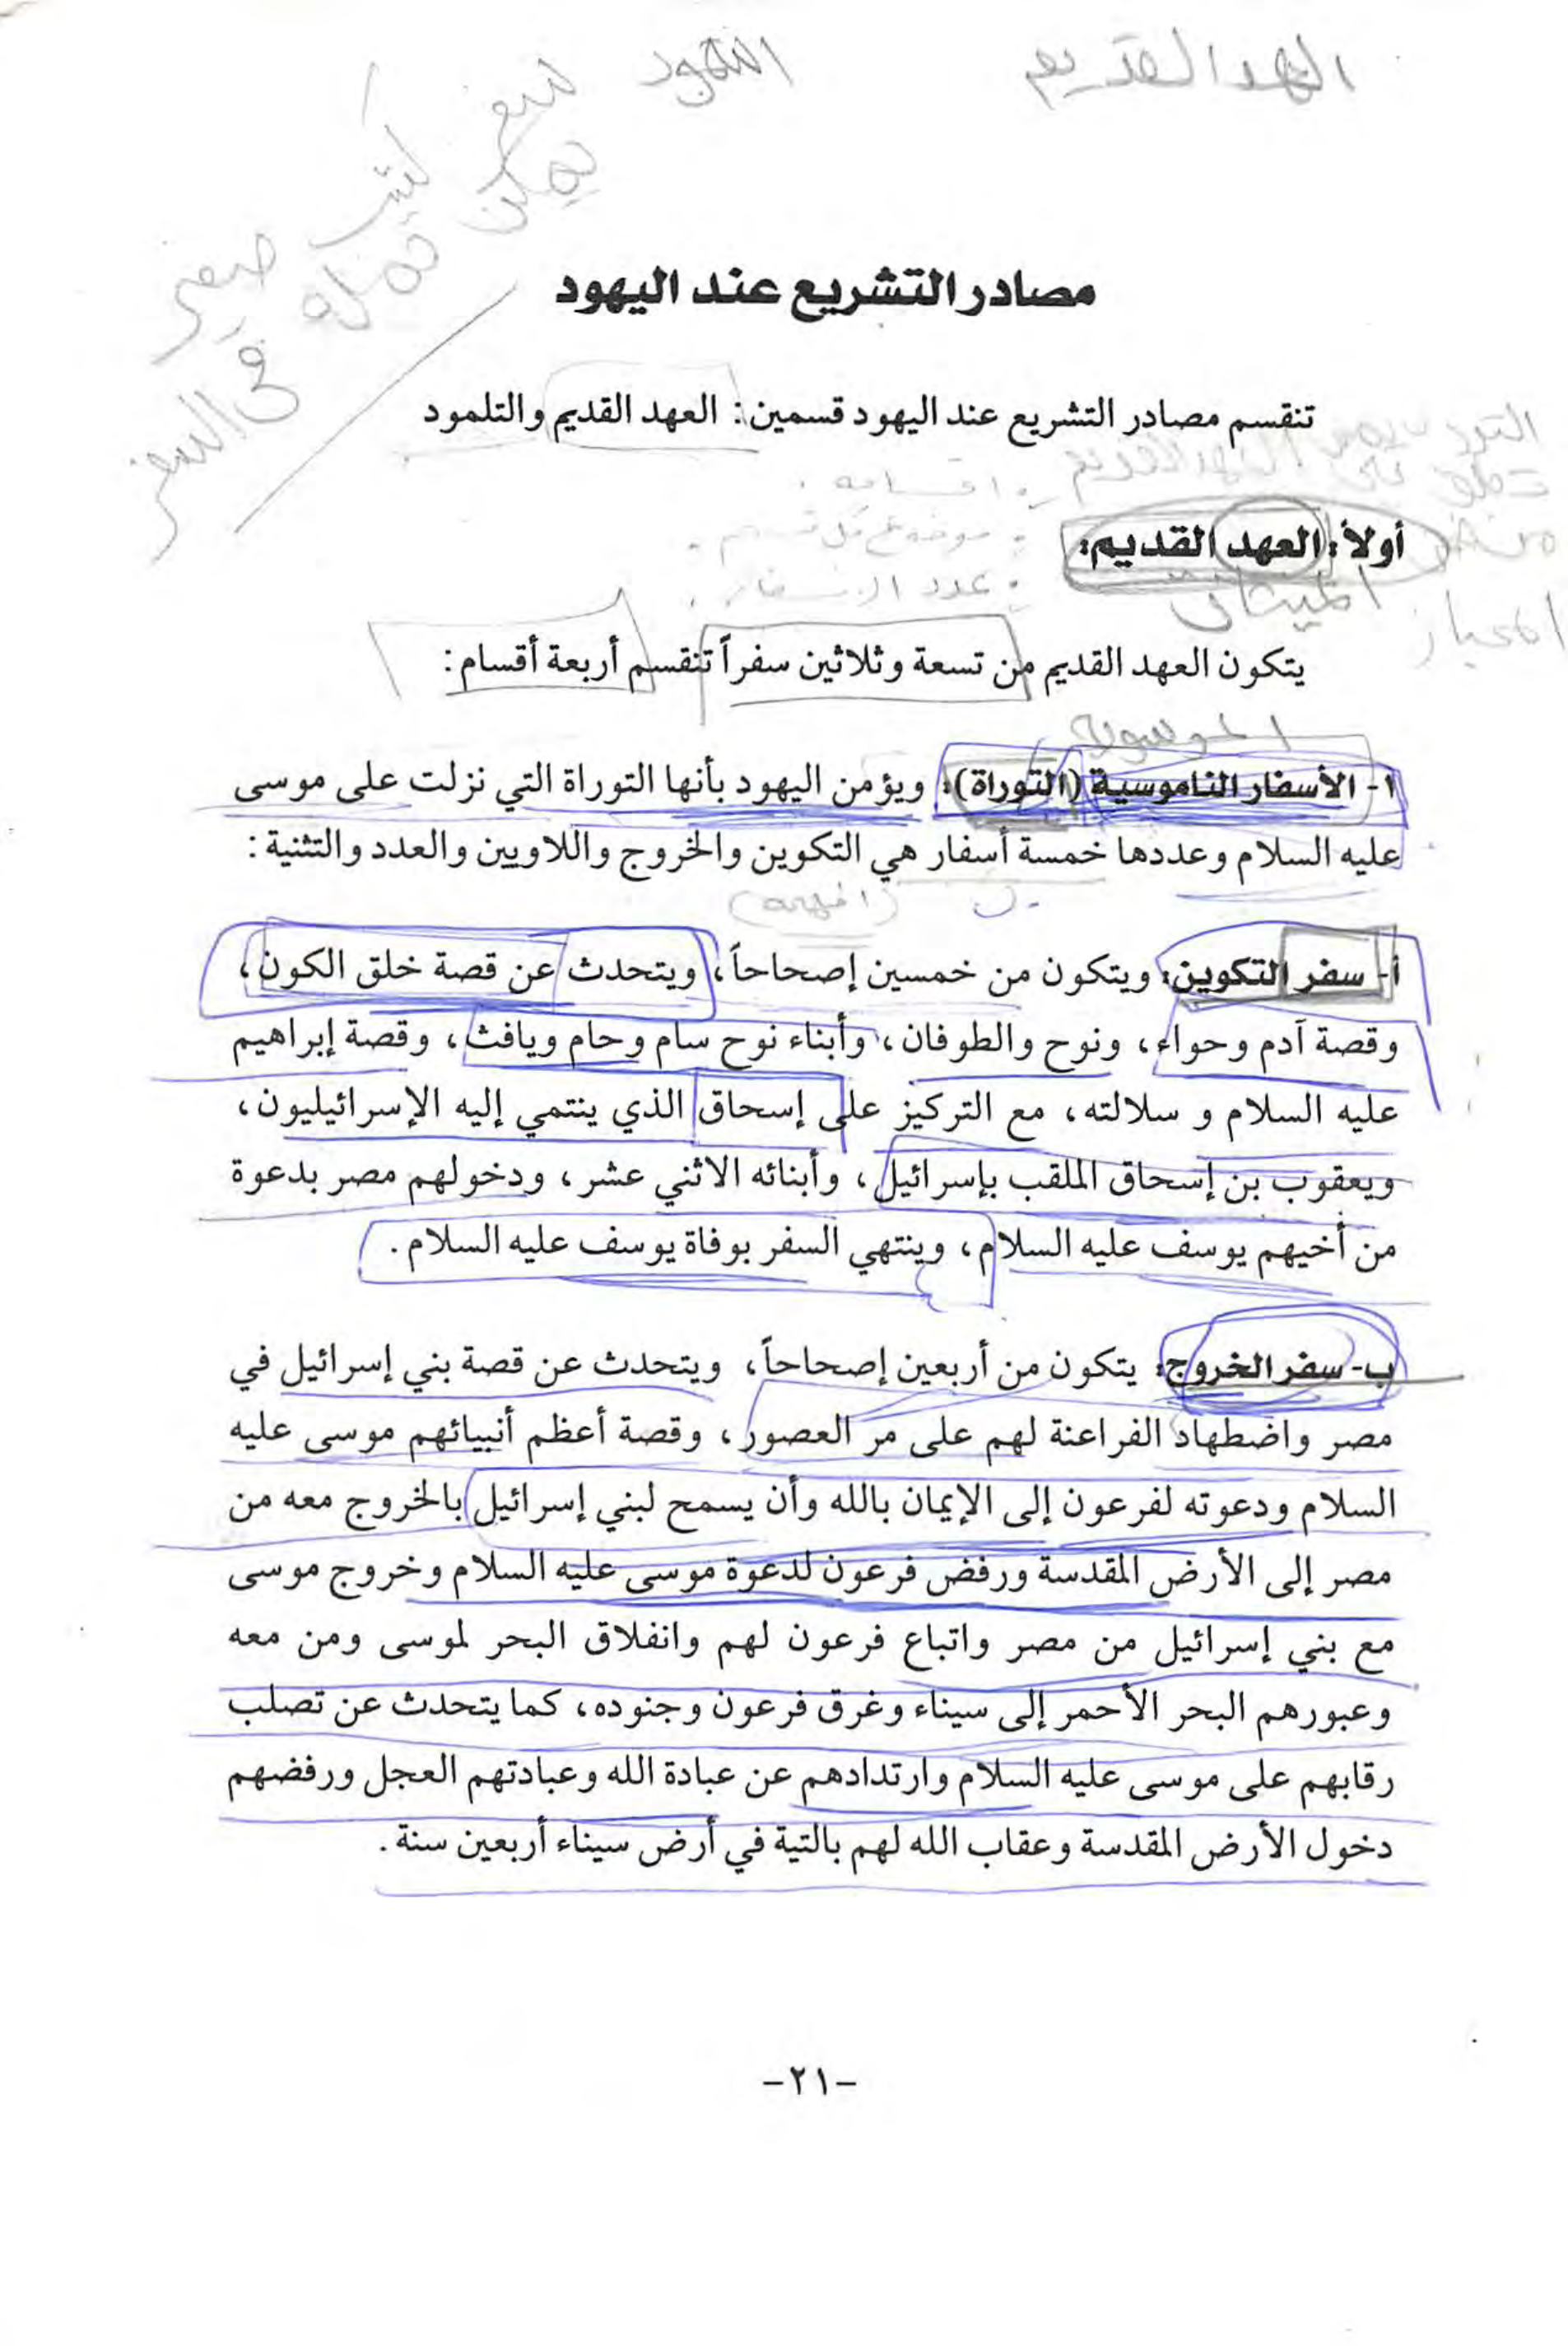 العهد القديم
التلمود
سفر
كتيب صغير
يمكن حمله في السفر
مصادر التشريع عند اليهود
تنقسم مصادر التشريع عند اليهود قسمين: العهد القديم والتلمود
أولاً: العهد القديم:
الميثاق
يتكون العهد القديم من تسعة وثلاثين سفراً تنقسم أربعة أقسام:
١- الأسفار الناموسية (التوراة): ويؤمن اليهود بأنها التوراة التي نزلت على موسى
عليه السلام وعددها خمسة أسفار هي التكوين والخروج واللاويين والعدد والتثنية:
أ- سفر التكوين: ويتكون من خمسين إصحاحاً، ويتحدث عن قصة خلق الكون،
وقصة آدم وحواء، ونوح والطوفان، وأبناء نوح سام وحام ويافث، وقصة إبراهيم
عليه السلام و سلالته، مع التركيز على إسحاق الذي ينتمي إليه الإسرائيليون،
ويعقوب بن إسحاق الملقب بإسرائيل، وأبنائه الاثني عشر، ودخولهم مصر بدعوة
من أخيهم يوسف عليه السلام، وينتهي السفر بوفاة يوسف عليه السلام.
ب- سفر الخروج: يتكون من أربعين إصحاحاً، ويتحدث عن قصة بني إسرائيل في
مصر واضطهاد الفراعنة لهم على مر العصور، وقصة أعظم أنبيائهم موسى عليه
السلام ودعوته لفرعون إلى الإيمان بالله وأن يسمح لبني إسرائيل بالخروج معه من
مصر إلى الأرض المقدسة ورفض فرعون لدعوة موسى عليه السلام وخروج موسى
مع بني إسرائيل من مصر واتباع فرعون لهم وانفلاق البحر لموسى ومن معه
وعبورهم البحر الأحمر إلى سيناء وغرق فرعون وجنوده، كما يتحدث عن تصلب
رقابهم على موسى عليه السلام وارتدادهم عن عبادة الله وعبادتهم العجل ورفضهم
دخول الأرض المقدسة وعقاب الله لهم بالتية في أرض سيناء أربعين سنة.
-٢١-